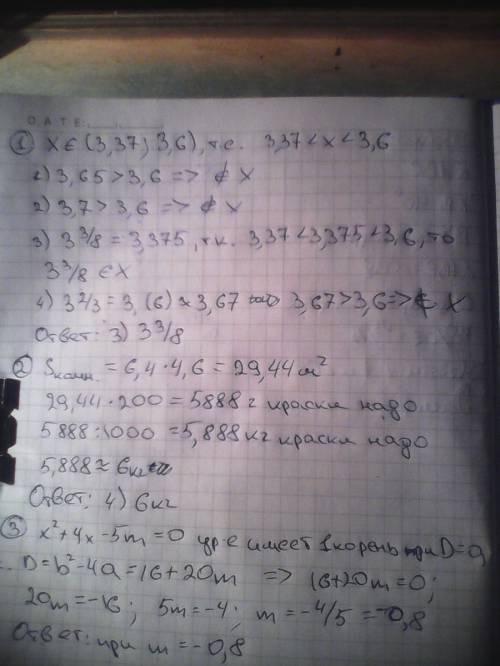 DATE:
① X ∈ (3,37; 3,6), т.е. 3,37 < x < 3,6
1) 3,65 > 3,6 => ∉ X
2) 3,7 > 3,6 => ∉ X
3) 3 3/8 = 3,375, т.к. 3,37 < 3,375 < 3,6, то
3 3/8 ∈ X
4) 3 2/3 = 3,(6) ≈ 3,67 3,67 > 3,6 => ∉ X
Ответ: 3) 3 3/8
② Sкомн. = 6,4 · 4,6 = 29,44 м²
29,44 · 200 = 5888 г краски надо
5888 : 1000 = 5,888 кг краски надо
5,888 ≈ 6кг
Ответ: 4) 6 кг
③ x² + 4x - 5m = 0 ур-е имеет 1 корень при D = 0,
D = b² - 4a = 16 + 20m => 16 + 20m = 0;
20m = -16; 5m = -4; m = -4/5 = -0,8
Ответ: при m = -0,8